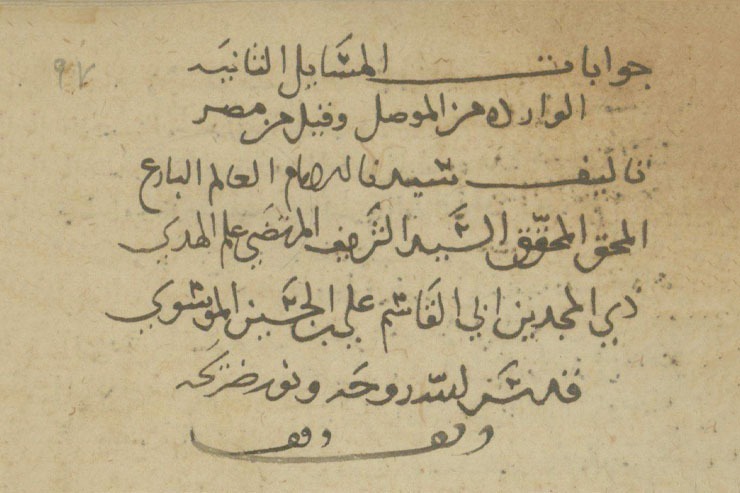 ٩٧
جوابات المسایل الثانیه
الوارده من الموصل وقیل من مصر
تالیف سیدنا الامام العالم البارع
المحق المحقق السید الشریف المرتضی علم الهدی
ذی المجدین ابی القاسم علی بن الحسین الموسوی
قدس الله روحه ونور ضریحه
وقف وقف